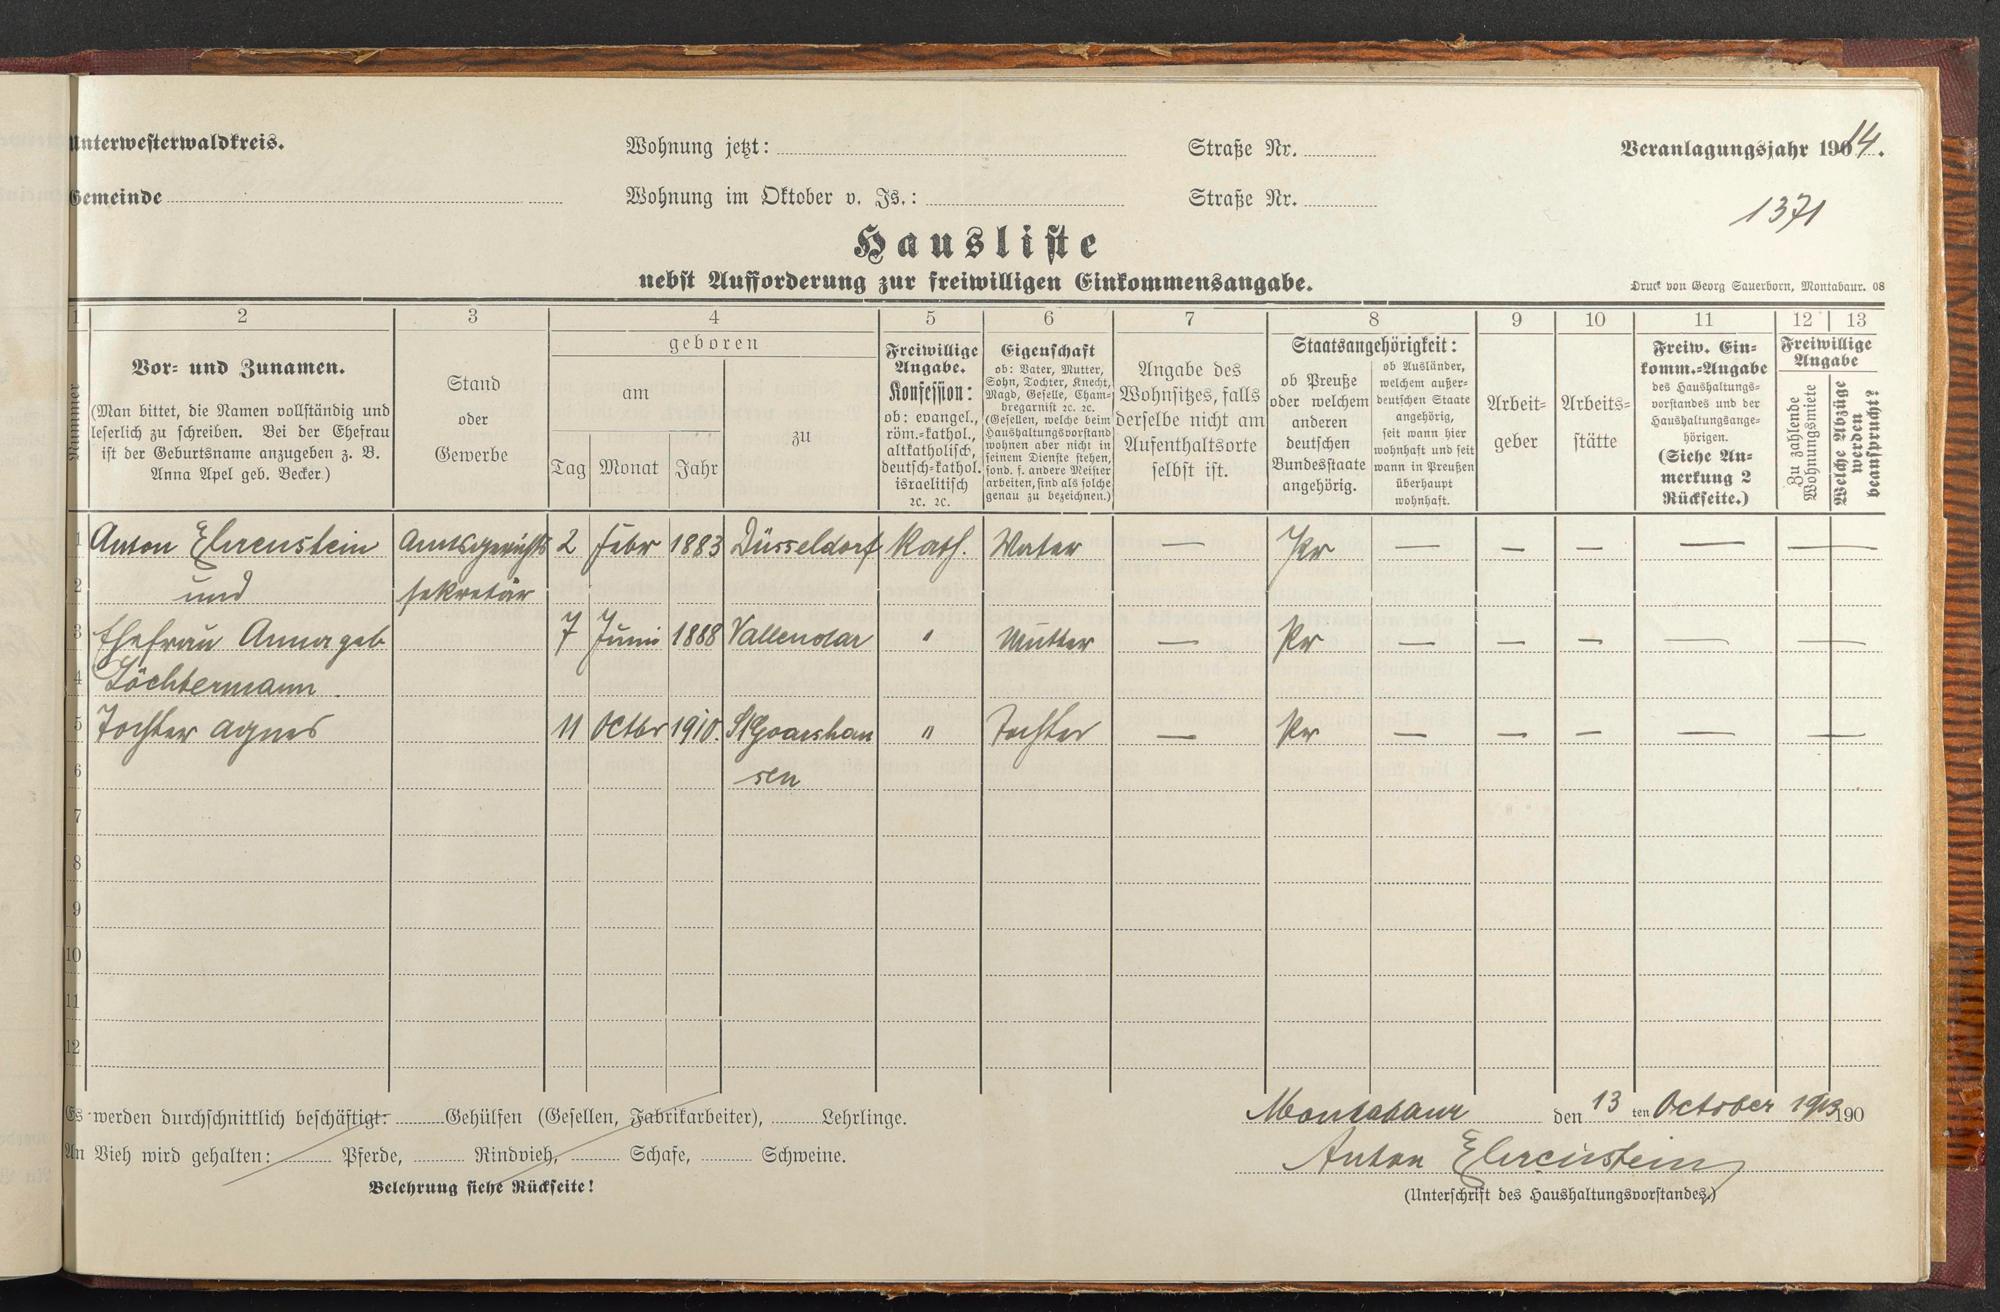 Unterwesterwaldkreis. Wohnung jetzt: Straße Nr. Veranlagungsjahr 190 14.
Gemeinde Wohnung im Oktober v. Js.: Straße Nr.
1371
Hausliste
nebst Aufforderung zur freiwilligen Einkommensangabe.
Druck von Georg Sauerborn, Montabaur. 08
1 2 3 4 5 6 7 8 9 10 11 12 13
Nummer
Vor- und Zunamen.
(Man bittet, die Namen vollständig und
leserlich zu schreiben. Bei der Ehefrau
ist der Geburtsname anzugeben z. B.
Anna Apel geb. Becker.)
Stand
oder
Gewerbe
geboren
am
Tag Monat Jahr
zu
Freiwillige
Angabe.
Konfession:
ob: evangel.,
röm.-kathol.,
altkatholisch,
deutsch-kathol.
israelitisch
ꝛc. ꝛc.
Eigenschaft
ob: Vater, Mutter,
Sohn, Tochter, Knecht,
Magd, Geselle, Cham-
bregarnist ꝛc. ꝛc.
(Gesellen, welche beim
Haushaltungsvorstand
wohnen aber nicht in
seinem Dienste stehen,
sond. f. andere Meister
arbeiten, sind als solche
genau zu bezeichnen.)
Angabe des
Wohnsitzes, falls
derselbe nicht am
Aufenthaltsorte
selbst ist.
Staatsangehörigkeit:
ob Preuße
oder welchem
anderen
deutschen
Bundesstaate
angehörig.
ob Ausländer,
welchem außer-
deutschen Staate
angehörig,
seit wann hier
wohnhaft und seit
wann in Preußen
überhaupt
wohnhaft.
Arbeit-
geber
Arbeits-
stätte
Freiw. Ein-
komm.-Angabe
des Haushaltungs-
vorstandes und der
Haushaltungsange-
hörigen.
(Siehe An-
merkung 2
Rückseite.)
Freiwillige
Angabe
Zu zahlende
Wohnungsmiete
Welche Abzüge
werden
beansprucht?
1 Anton Ehrenstein Amtsgerichts 2 Febr 1883 Düsseldorf Kath. Vater — Pr — — — — —
2 und sekretär
3 Ehefrau Anna geb 7 Juni 1888 Vallendar " Mutter — Pr — — — — —
4 Löchtermann.
5 Tochter Agnes 11 Octbr 1910. St Goarshau " Tochter — Pr — — — — —
6 sen
7
8
9
10
11
12
Es werden durchschnittlich beschäftigt: Gehülfen (Gesellen, Fabrikarbeiter), Lehrlinge.
An Vieh wird gehalten: Pferde, Rindvieh, Schafe, Schweine.
Belehrung siehe Rückseite!
Montabaur den 13 ten October 1913 190
Anton Ehrenstein
(Unterschrift des Haushaltungsvorstandes)